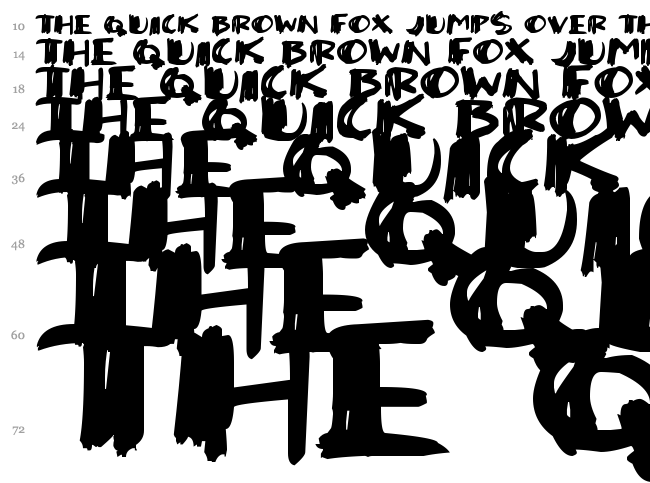 10 THE QUICK BROWN FOX JUMPS OVER TH
14 THE QUICK BROWN FOX JUM
18 THE QUICK BROWN FOX
24 THE QUICK BROW
36 THE QUICK
48 THE QU
60 THE Q
72 THE Q